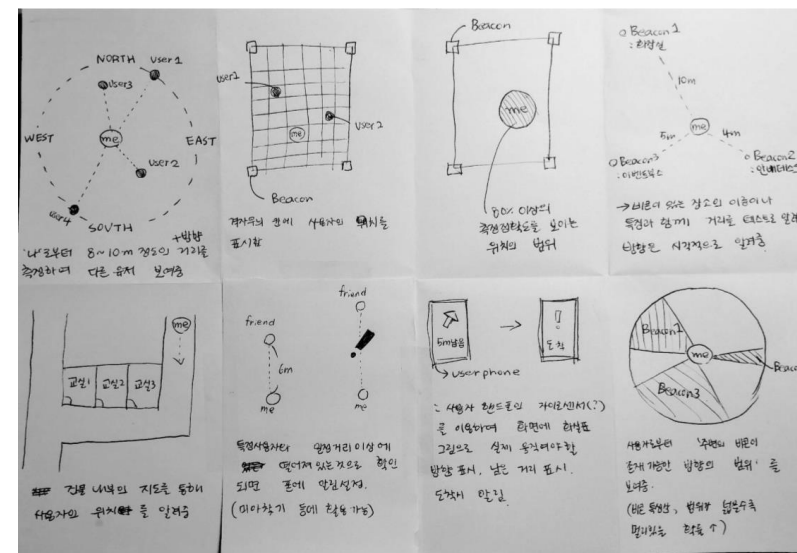 NORTH
user1
user3
WEST
me
EAST
user2
user4
SOUTH
+방향
'나'로부터 8~10m 정도의 거리를
측정하여 다른 유저 보여줌
user1
me
user2
Beacon
격자무늬 안에 사용자의 위치를
표시함
Beacon
me
80% 이상의
측정정확도를 보이는
위치의 범위
Beacon 1
: 화장실
10m
me
5m
4m
Beacon3
: 이벤트부스
Beacon2
: 안내데스크
→ 비콘이 있는 장소의 이름이나
특징과 함께 거리를 텍스트로 알려
방향은 시각적으로 알려줌
me
교실1
교실2
교실3
건물 내부의 지도를 통해
사용자의 위치를 알려줌
friend
6m
me
friend
!
me
특정사용자와 일정거리 이상에
떨어져 있는것으로 확인
되면 폰에 알림설정.
(미아찾기 등에 활용가능)
5m남음
→
!
도착
user phone
: 사용자 핸드폰의 자이로센서(?)
를 이용하여 화면에 화살표
그림으로 실제 움직여야 할
방향 표시, 남은 거리 표시.
도착시 알림.
me
Beacon3
사용자로부터 '주변의 비콘이
존재 가능한 방향의 범위'를
보여줌.
(비콘 특성상, 범위가 넓을수록
멀리있을 확률↑)